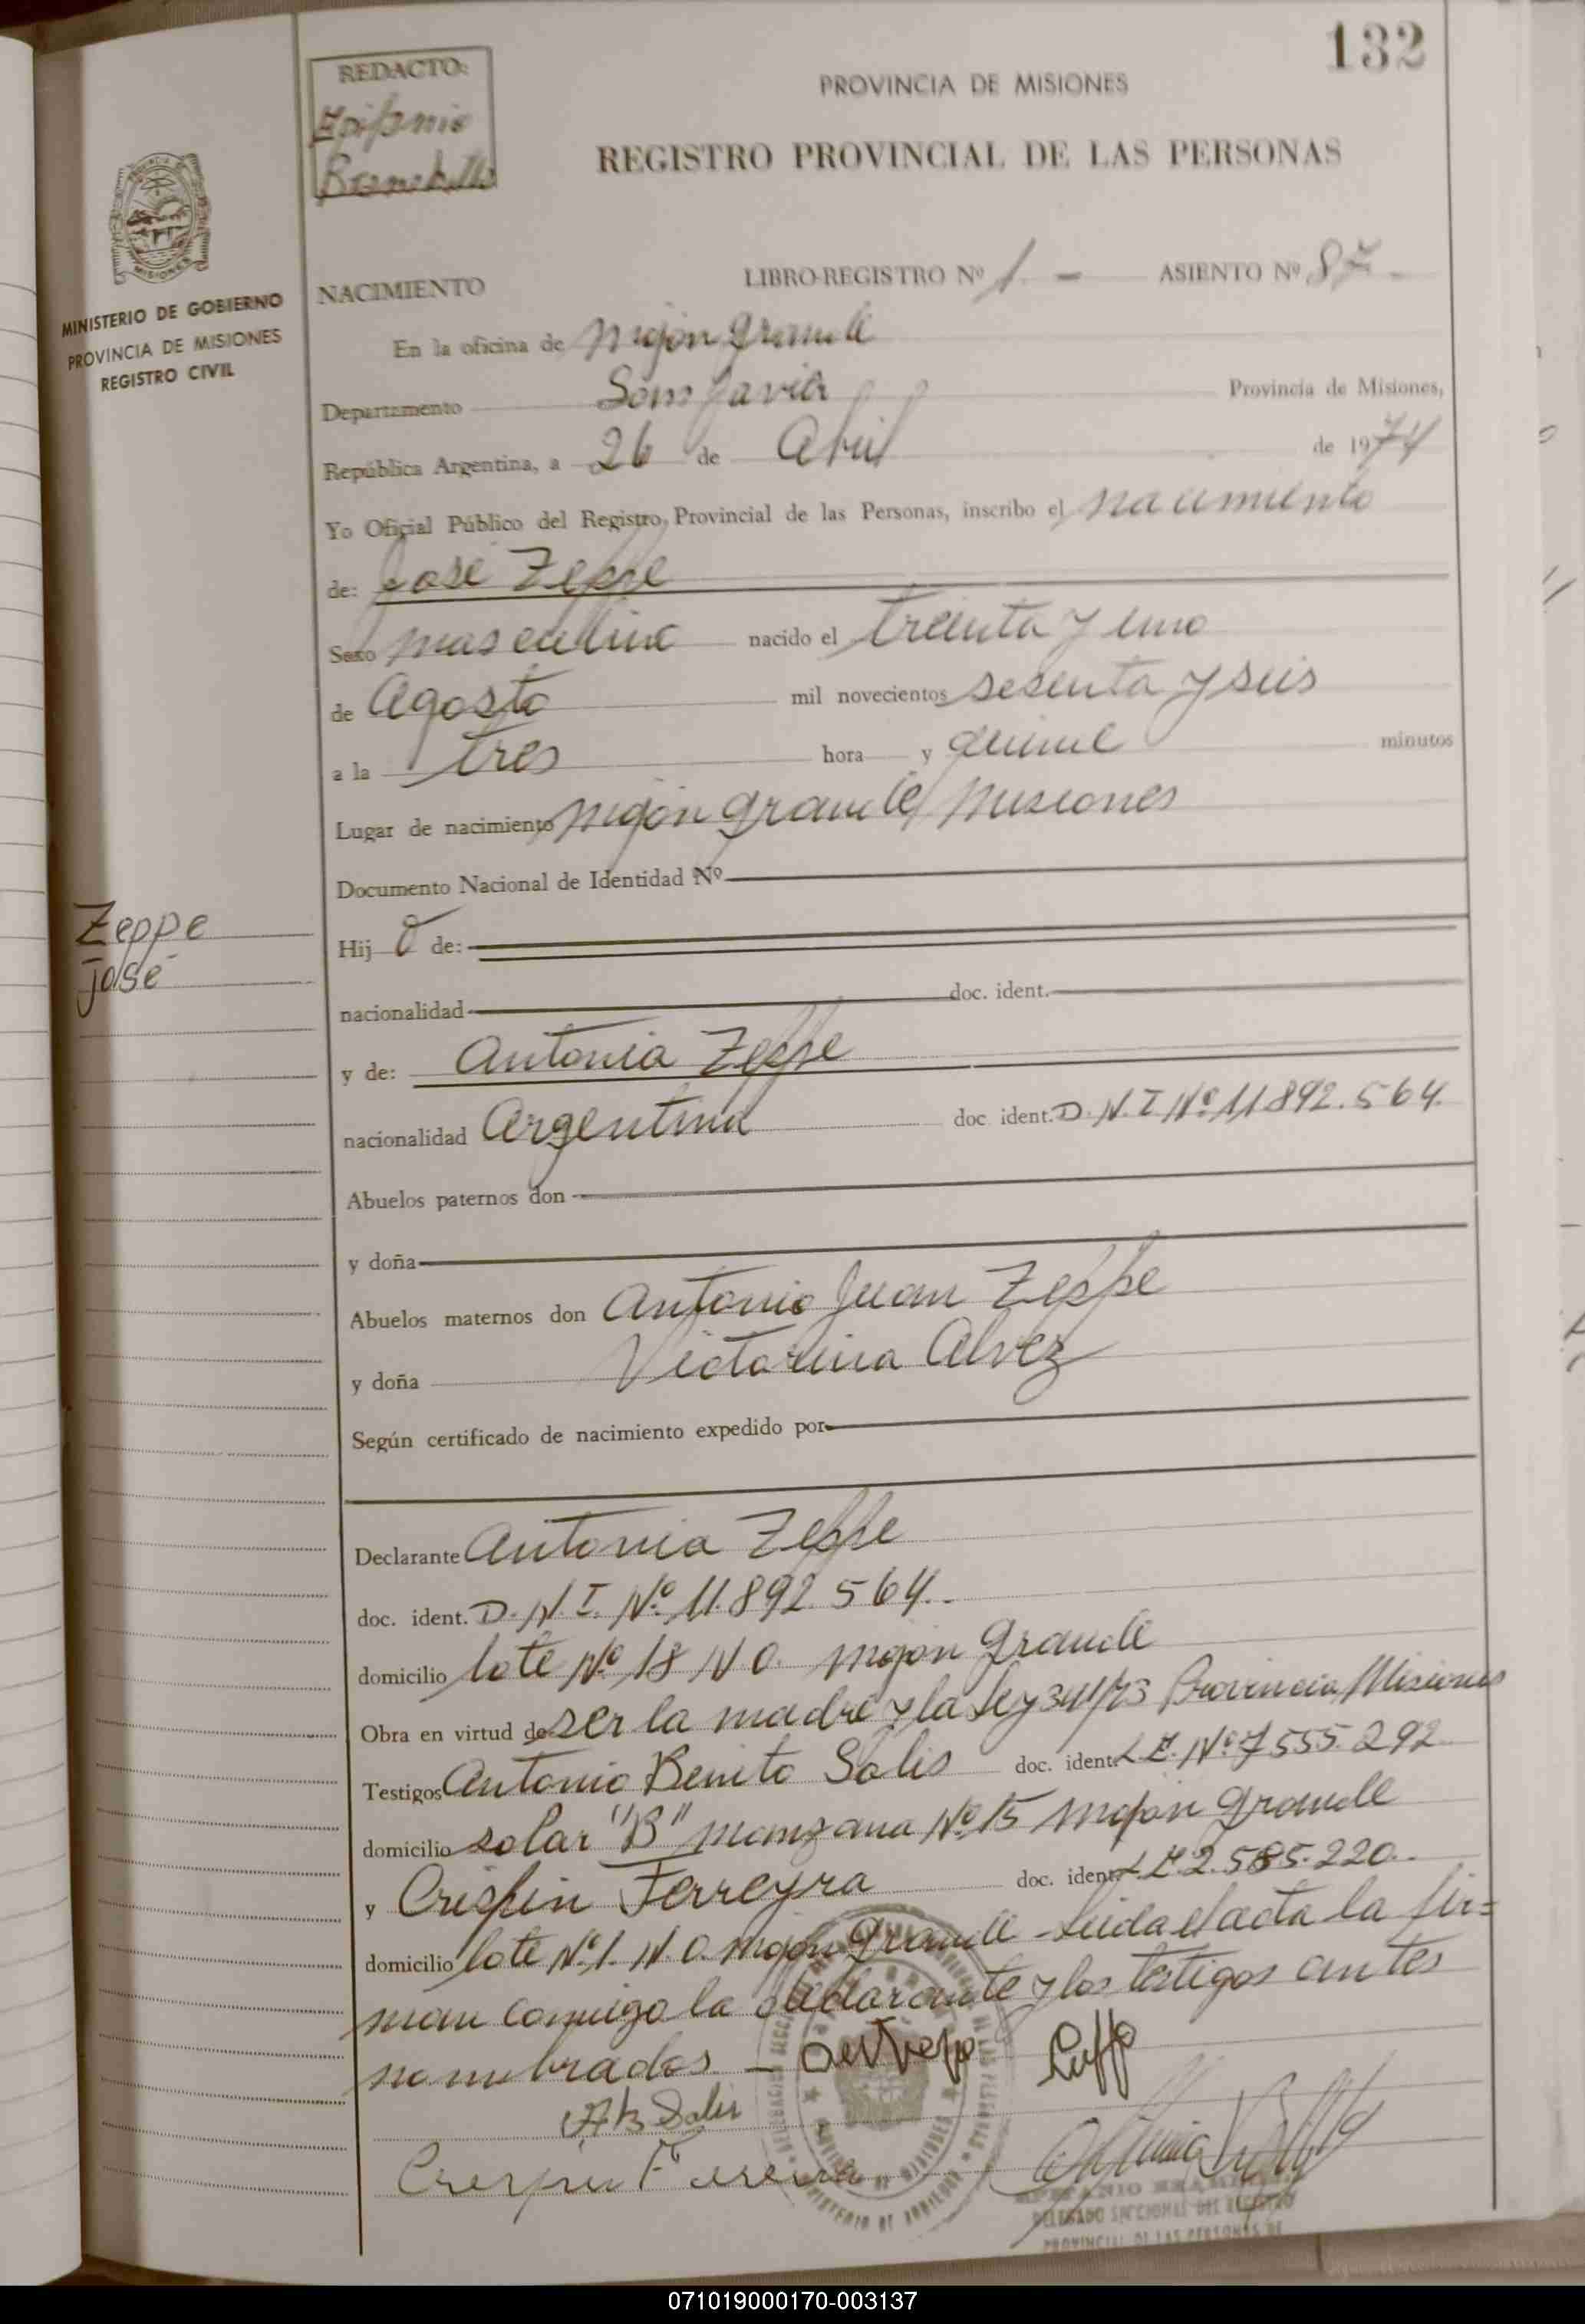 132
REDACTO:
Epifanio
PROVINCIA DE MISIONES
REGISTRO PROVINCIAL DE LAS PERSONAS
MISIONES
MINISTERIO DE GOBIERNO
PROVINCIA DE MISIONES
REGISTRO CIVIL
NACIMIENTO LIBRO-REGISTRO Nº 1 - ASIENTO Nº 87 -
En la oficina de Mojón Grande
Departamento San Javier Provincia de Misiones,
República Argentina, a 26 de Abril de 1974
Yo Oficial Público del Registro Provincial de las Personas, inscribo el nacimiento
de: José Zeppe
Sexo masculino nacido el treinta y uno
de Agosto mil novecientos sesenta y seis
a la tres hora y quince minutos
Lugar de nacimiento Mojón Grande, Misiones
Documento Nacional de Identidad Nº
Zeppe
José
Hij o de:
nacionalidad doc. ident.
y de: Antonia Zeppe
nacionalidad Argentina doc ident. D.N.I Nº 11.892.564.
Abuelos paternos don
y doña
Abuelos maternos don Antonio Juan Zeppe
y doña Victorina Alvez
Según certificado de nacimiento expedido por
Declarante Antonia Zeppe
doc. ident. D.N.I. Nº 11.892.564.-
domicilio lote Nº 18 N.O. Mojón Grande
Obra en virtud de ser la madre y la Ley 341/73 Provincia Misiones
Testigos Antonio Benito Solis doc. ident. L.E. Nº 7555.292
domicilio solar "B" manzana Nº 15 Mojón Grande
y Crispin Ferreyra doc. ident. L.E. 2.585.220.-
domicilio lote Nº 1. N.O. Mojón Grande - Leida el acta la fir=
man conmigo la declarante y los testigos antes
nombrados -
AB Solis
DELEGADO SECCIONAL DEL REGISTRO
PROVINCIAL DE LAS PERSONAS DE
071019000170-003137